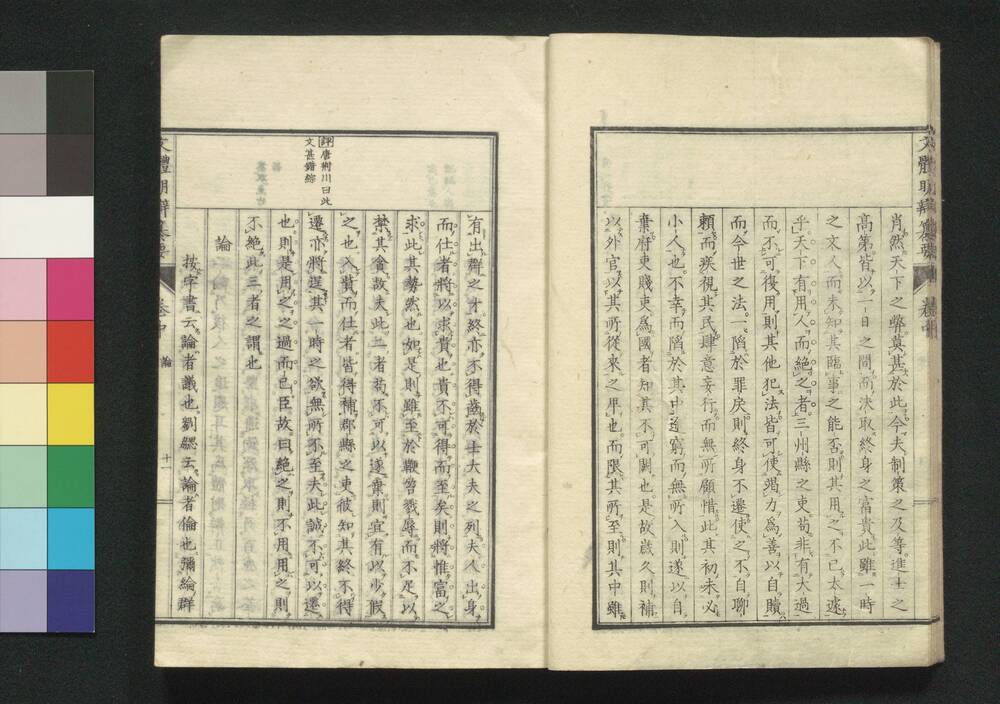 肖然天下之弊莫甚於此今夫制策之及等進士之
高第皆以一日之間而決取終身之富貴此雖一時
之文人而未知其臨事之能否則其用之不已太遽
乎天下有用人而絕之者三州縣之吏苟非有大過
而不可復用則其他犯法皆可使竭力爲善以自贖
而今世之法一陷於罪戾則終身不遷使之不自聊
賴而疾視其民肆意妄行而無所顧惜此其初未必
小人也不幸而陷於其中途窮而無所入則遂以自
棄府吏賤吏爲國者知其不可闕也是故歲久則補
以外官以其所從來之卑也而限其所至則其中雖
有出群之才終亦不得齒於士大夫之列夫人出身
而仕者將以求貴也貴不可得而至矣則將惟富之
求此其勢然也如是則雖至於鞭笞戮辱而不足以
禁其貪故夫此二者苟不可以遂棄則宜有以少假
之也入貲而仕者皆得補郡縣之吏彼知其終不得
遷亦將逞其一時之欲無所不至夫此誠不可以遷
也則是用之之過而已臣故曰絕之則不用用之則
不絕此三者之謂也
評唐荊川曰此
文甚錯綜
論
按字書云論者議也劉勰云論者倫也彌綸群
文體明辯
卷中
論
十一